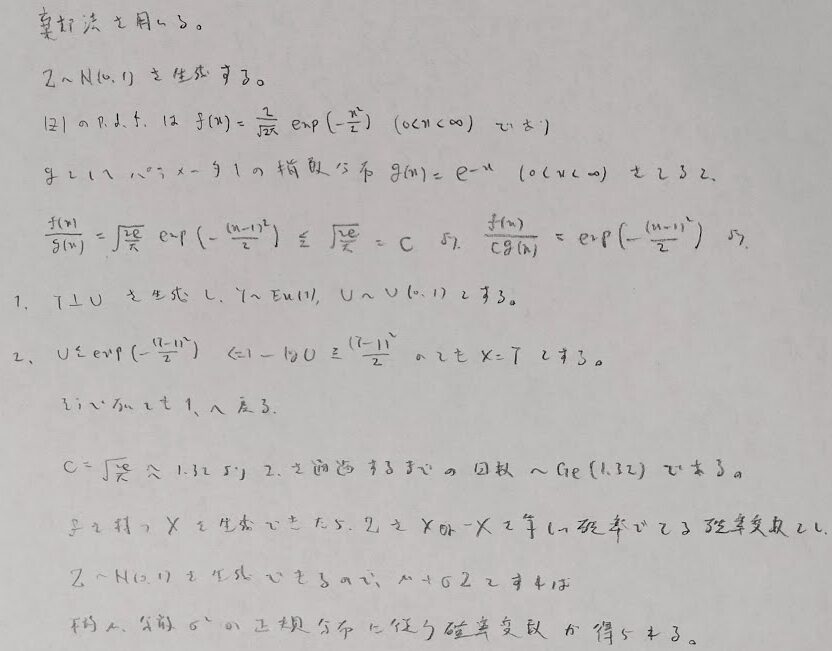 棄却法を用いる。
Z~N(0,1) を生成する。
|Z| の p.d.f. は f(x) = 2/√2π exp(-x²/2) (0<x<∞) であり
gとしてパラメータ1の指数分布 g(x) = e^-x (0<x<∞) をとると、
f(x)/g(x) = √2e/π exp(-(x-1)²/2) ≤ √2e/π = C より f(x)/Cg(x) = exp(-(x-1)²/2) より
1. Y⊥U を生成し、Y~Ex(1), U~U(0,1) とする。
2. U≤exp(-(Y-1)²/2) ⇔ -log U ≥ (Y-1)²/2 のとき X=Y とする。
そうでないとき 1. へ戻る.
C=√2e/π ≈ 1.32 より 2. を通過するまでの回数 ~ Ge(1.32) である。
fを持つ X を生成できたら. Zを X or -X を等しい確率でとる確率変数とし.
Z~N(0,1) を生成できるので、μ+σZ とすれば
平均μ, 分散σ² の正規分布に従う確率変数が得られる。